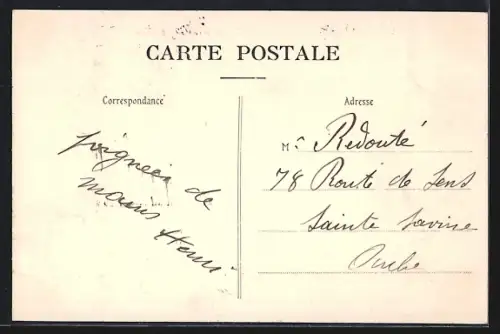 CARTE POSTALE
Correspondance
poignées de
mains Henri
Adresse
Mr Redouté
78 Route de Sens
Sainte Savine
Aube